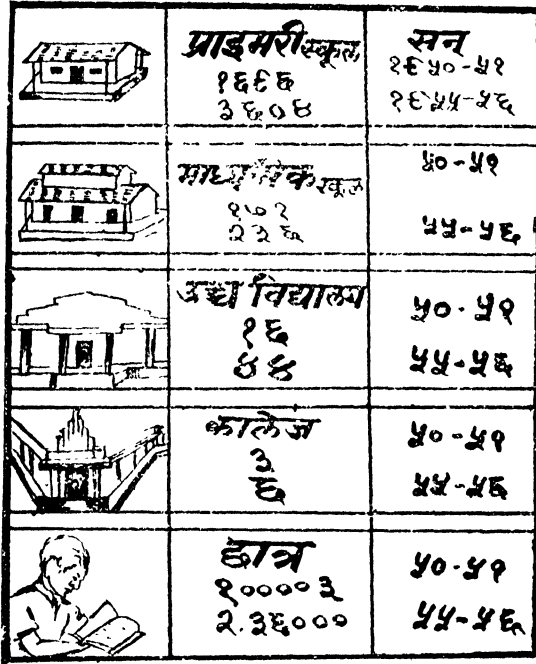 प्राइमरी स्कूल
१६६६
३६०४
सन्
१९५०-५१
१९५५-५६
माध्यमिक स्कूल
१७१
२२६
५०-५१
५५-५६
उच्च विद्यालय
१६
४४
५०-५१
५५-५६
कालेज
३
६
५०-५१
५५-५६
छात्र
१००००३
२.३६०००
५०-५१
५५-५६